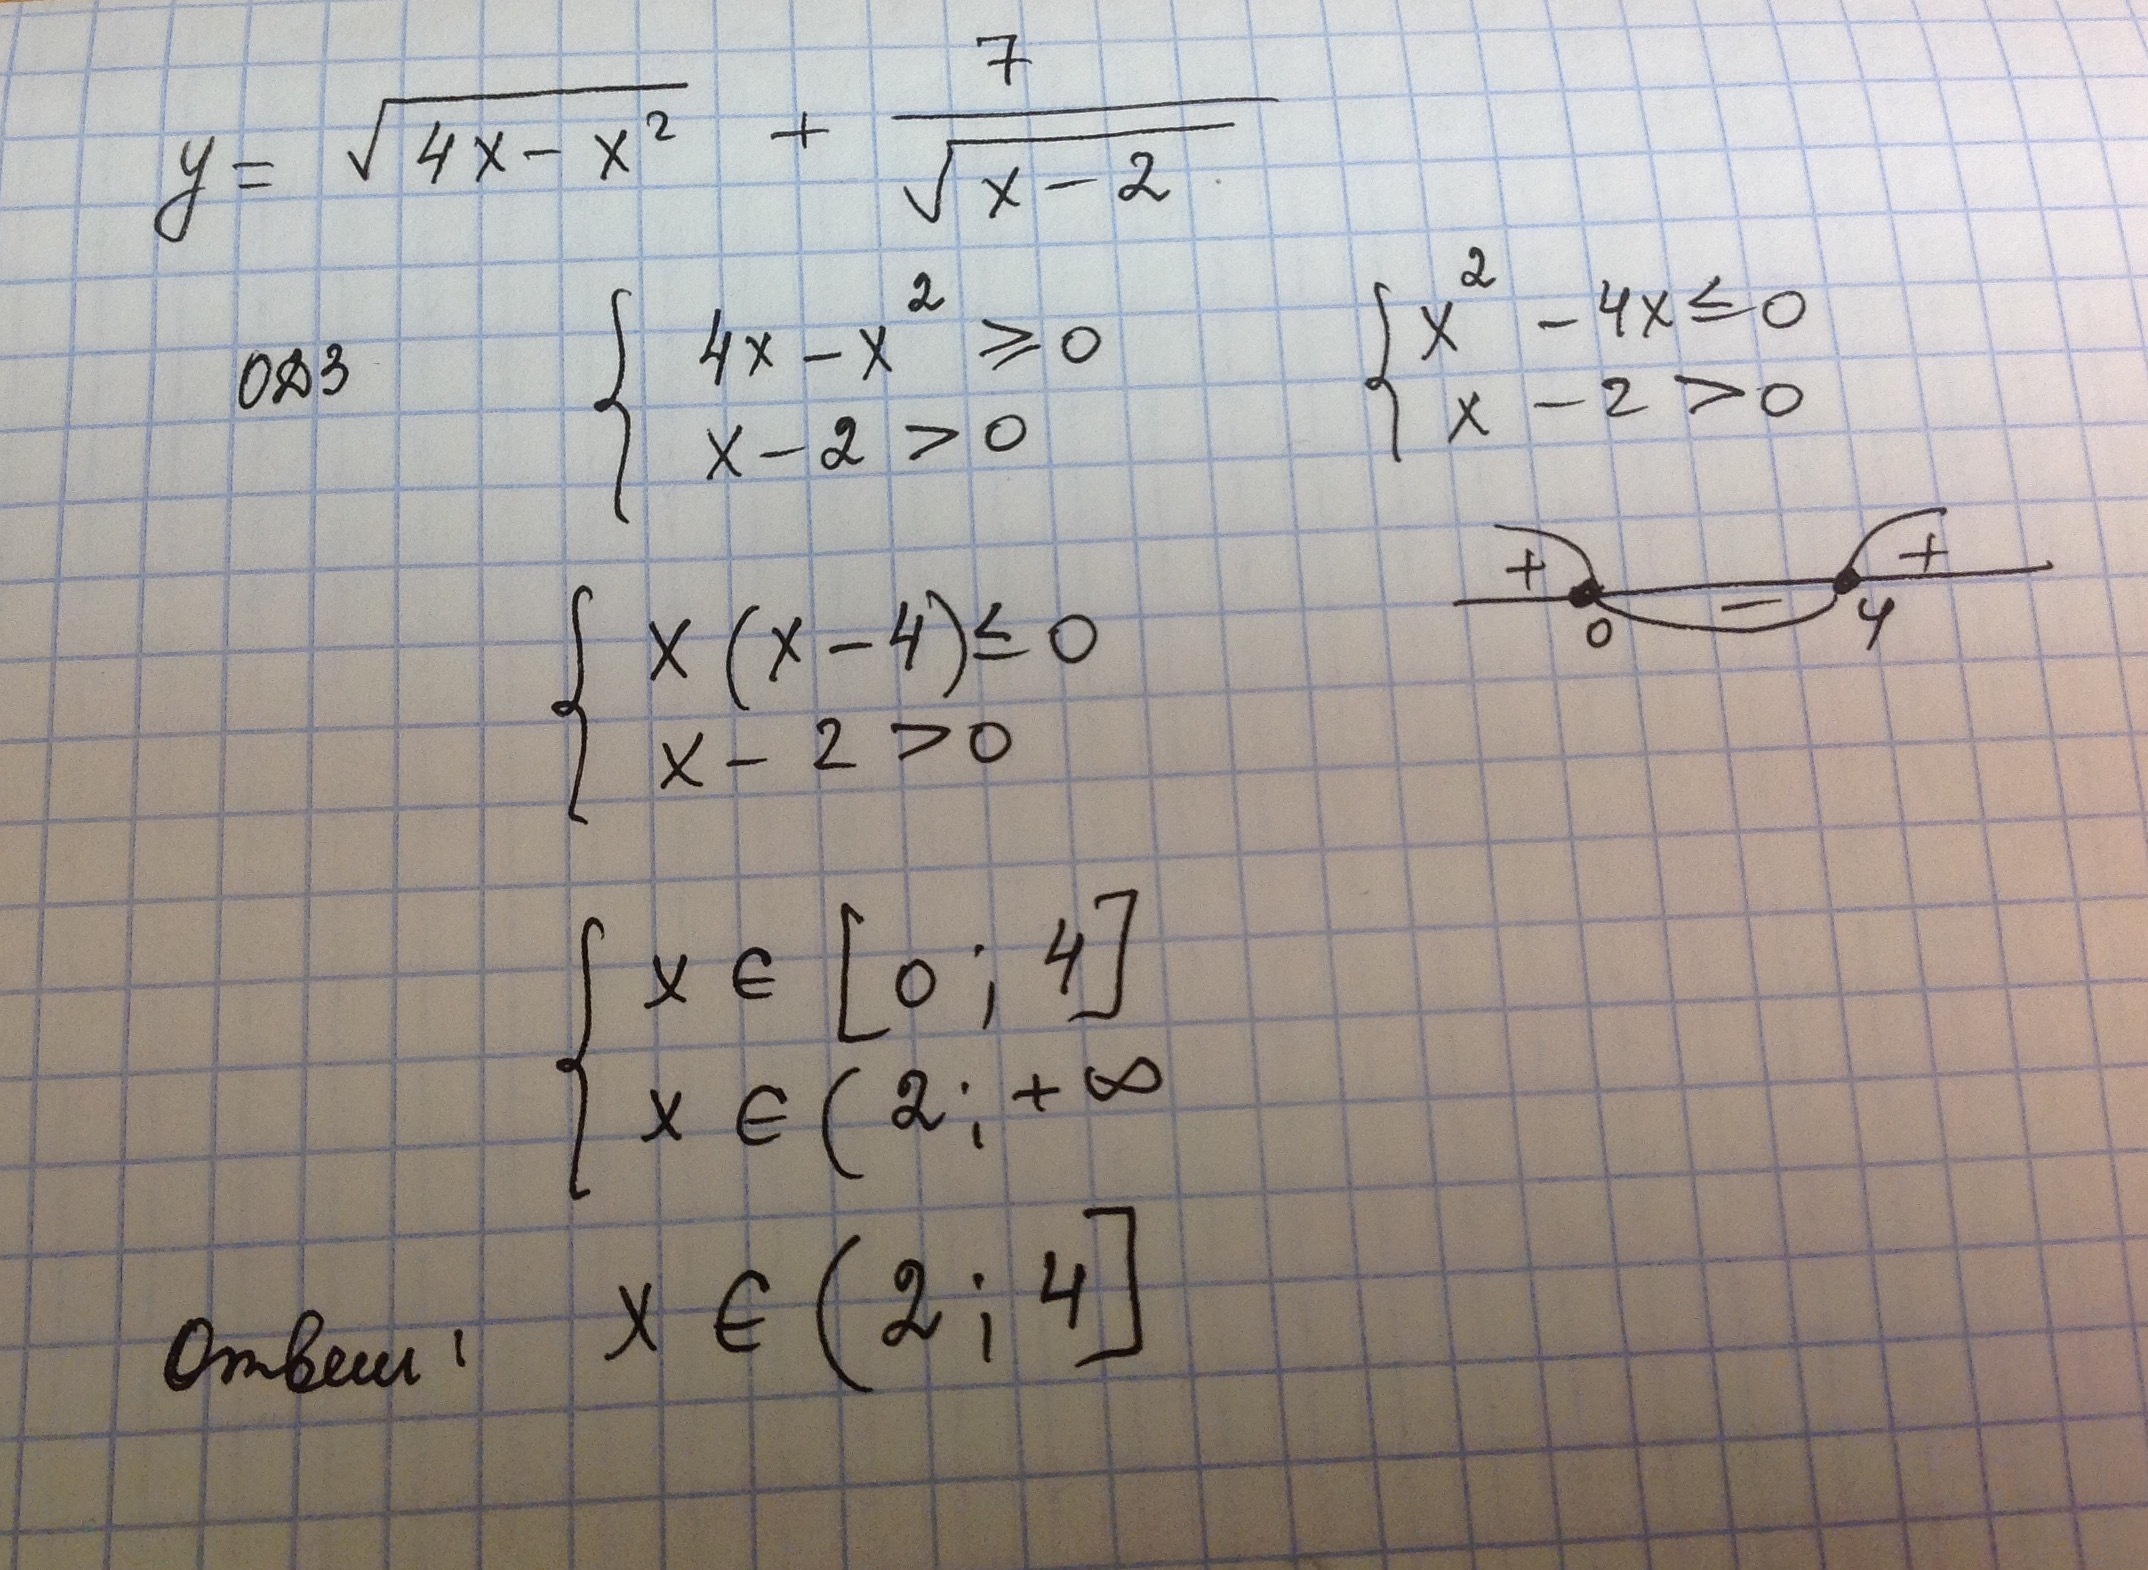 y = √(4x - x²) + 7/√(x - 2)
ОДЗ { 4x - x² ≥ 0
x - 2 > 0
{ x² - 4x ≤ 0
x - 2 > 0
+ - +
0 4
{ x (x - 4) ≤ 0
x - 2 > 0
{ x ∈ [0; 4]
x ∈ (2; + ∞
Ответ: x ∈ (2; 4]